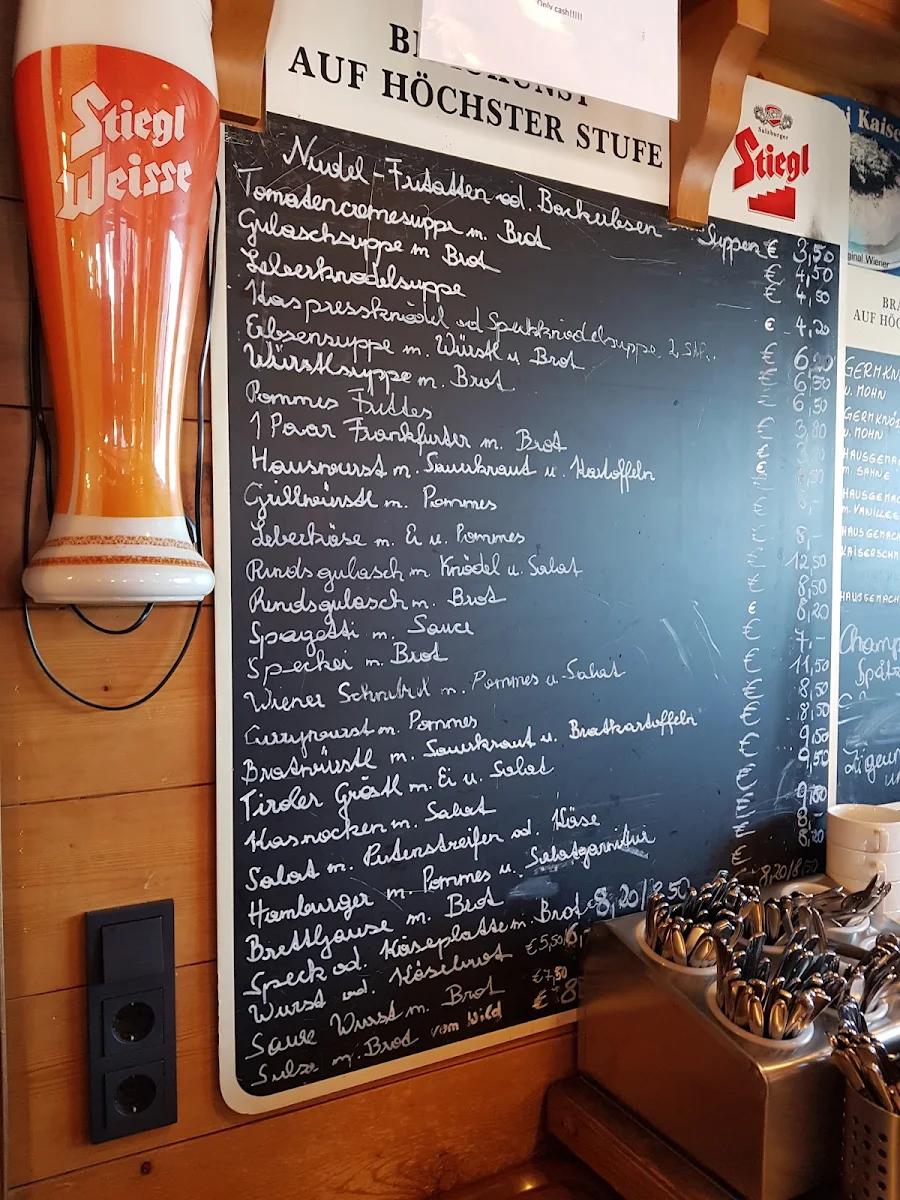 Only cash!!!!!
AUF HÖCHSTER STUFE
Stiegl
Weisse
Salzburger
Stiegl
Kaise
ginal Wiener
Nudel-Fritatten od. Backerbsen Suppen € 3,50
Tomatencremesuppe m. Brot € 4,50
Gulaschsuppe m Brot € 4,50
Leberknödelsuppe € 4,20
Kaspressknödel od Speckknödelsuppe 2 Stk. €
Erbsensuppe m. Würstl u Brot
Würstlsuppe m. Brot
Pommes Frittes
1 Paar Frankfurter m. Brot
Hauswurst m. Sauerkraut u. Kartoffeln
Grillwürstl m. Pommes
Leberkäse m. Ei u. Pommes 8,-
Rindsgulasch m Knödel u. Salat 12,50
Rindsgulasch m. Brot 8,50
Spagetti m. Sauce 8,20
Speckei m. Brot 7,-
Wiener Schnitzel m. Pommes u. Salat 11,50
Currywurst m. Pommes 8,50
Bratwürstl m. Sauerkraut u. Bratkartoffeln 8,50
Tiroler Gröstl m. Ei u. Salat 9,50
Kasnocken m. Salat 9,50
Salat m. Putenstreifen od. Käse 9,80
Hamburger m. Pommes u. Salatgarnitur 8,20
Brettljause m. Brot 8,20/8,50
Speck od. Käseplatte m. Brot 8,20/8,50
Wurst od. Käsebrot € 5,50
Saure Wurst m. Brot € 7,80
Sulze m. Brot vom Wild €
BRA
AUF HÖC
GERMKN
u. MOHN
GERMKNÖ
u. MOHN
HAUSGEMA
m. SAHNE
HAUSGEMAC
m. VANILLE
HAUSGEMACH
KAISERSCHM
HAUSGEMACH
Champ
Spätz
Zigeun